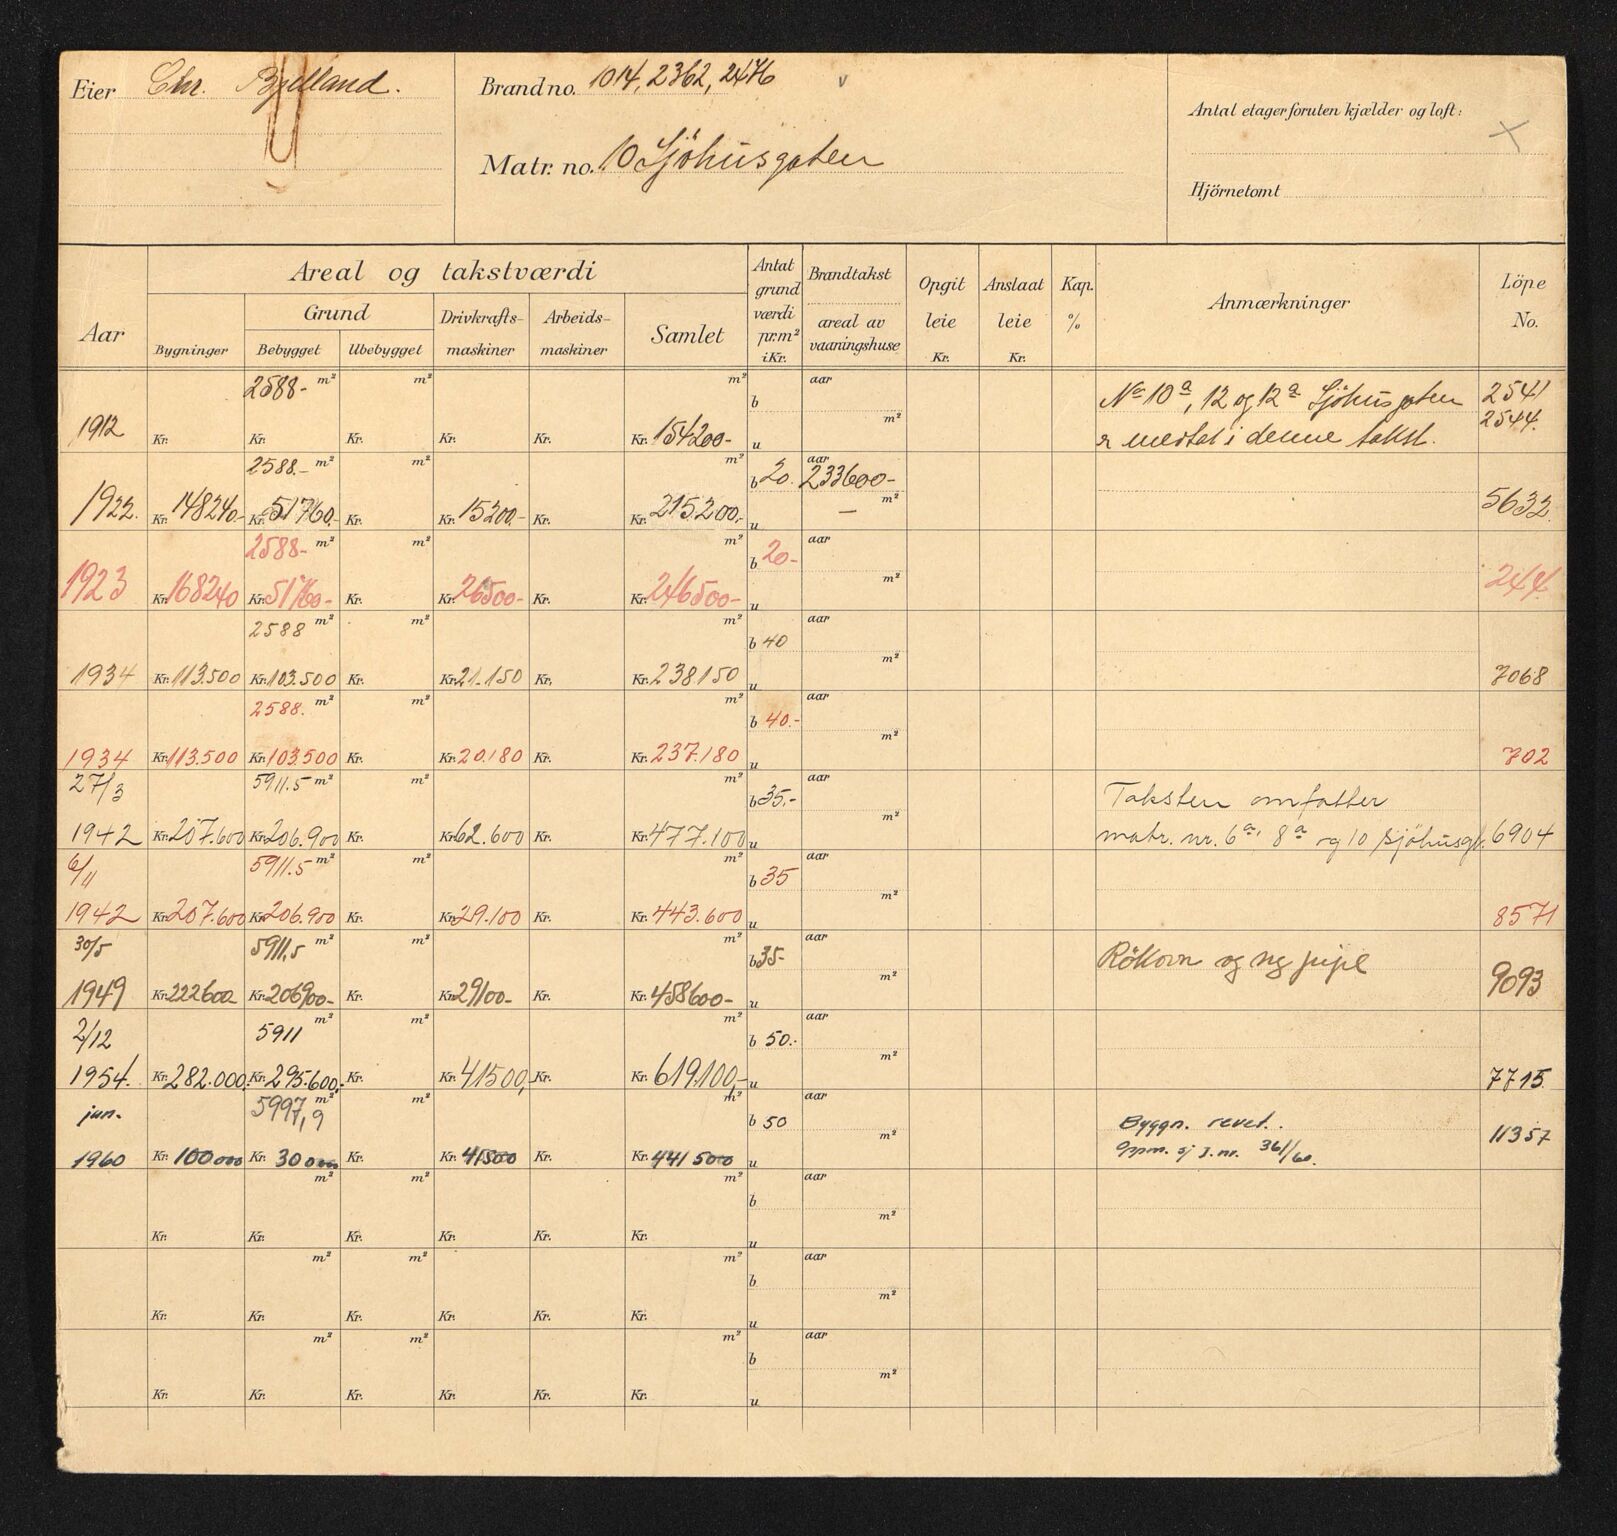 Eier Chr. Bjelland.
Brandno. 1014, 2362, 2476 v
Matr. no. 10 Sjöhusgaten
Antal etager foruten kjælder og loft:
Hjörnetomt
Aar
Areal og takstværdi
Grund
Bygninger Bebygget Ubebygget
Drivkrafts-
maskiner
Arbeids-
maskiner
Samlet
Antat
grund
værdi
pr. m²
i Kr.
Brandtakst
areal av
vaaningshuse
Opgit
leie
Kr.
Anslaat
leie
Kr.
Kap.
%
Anmærkninger
Löpe
No.
2588- m² m² m² aar
b
No 10a, 12 og 12a Sjöhusgaten 2541
m² 2544.
1912 Kr. Kr. Kr. Kr. Kr. Kr. 154200- u
er medtat i denne takst.
2588.- m² m² m² aar
b 20. 233600-
m²
1922. Kr. 148240.- Kr. 51760.- Kr. Kr. 15200.- Kr. Kr. 215.200.- u — 5632.
2588- m² m² m² aar
b 20-
m²
1923 Kr. 168240 Kr. 51760- Kr. Kr. 26500- Kr. Kr. 246500- u 244.
2588 m² m² m² aar
b 40
m²
1934 Kr. 113.500 Kr. 103.500 Kr. Kr. 21.150 Kr. Kr. 238150 u 7068
2588. m² m² m² aar
b 40.-
m²
1934 Kr. 113.500 Kr. 103.500 Kr. Kr. 20.180 Kr. Kr. 237.180 u 702
27/3 5911.5 m² m² m² aar
b 35.- Taksten omfatter
m²
1942 Kr. 207.600 Kr. 206.900 Kr. Kr. 62.600 Kr. Kr. 477.100 u matr. nr. 6a, 8a og 10 Sjöhusgt. 6904
6/11 5911.5 m² m² m² aar
b 35
m²
1942 Kr. 207.600 Kr. 206.900 Kr. Kr. 29.100 Kr. Kr. 443.600 u 8571
30/5 5911,5 m² m² m² aar
b 35- Rökovn og ny pipe
m²
1949 Kr. 222600 Kr. 206900- Kr. Kr. 29100- Kr. Kr. 458600- u 9093
2/12 5911 m² m² m² aar
b 50.-
m²
1954. Kr. 282.000.- Kr. 295.600,- Kr. Kr. 41500,- Kr. Kr. 619.100,- u 7715
jun. 5997,9 m² m² m² aar
b 50 Byggn. revet.
m² 11357
1960 Kr. 100000 Kr. 300000 Kr. Kr. 41500 Kr. Kr. 441500 u j.nr. 361/60.
m² m² m² aar
b
m²
Kr. Kr. Kr. Kr. Kr. Kr. u
m² m² m² aar
b
m²
Kr. Kr. Kr. Kr. Kr. Kr. u
m² m² m² aar
b
m²
Kr. Kr. Kr. Kr. Kr. Kr. u